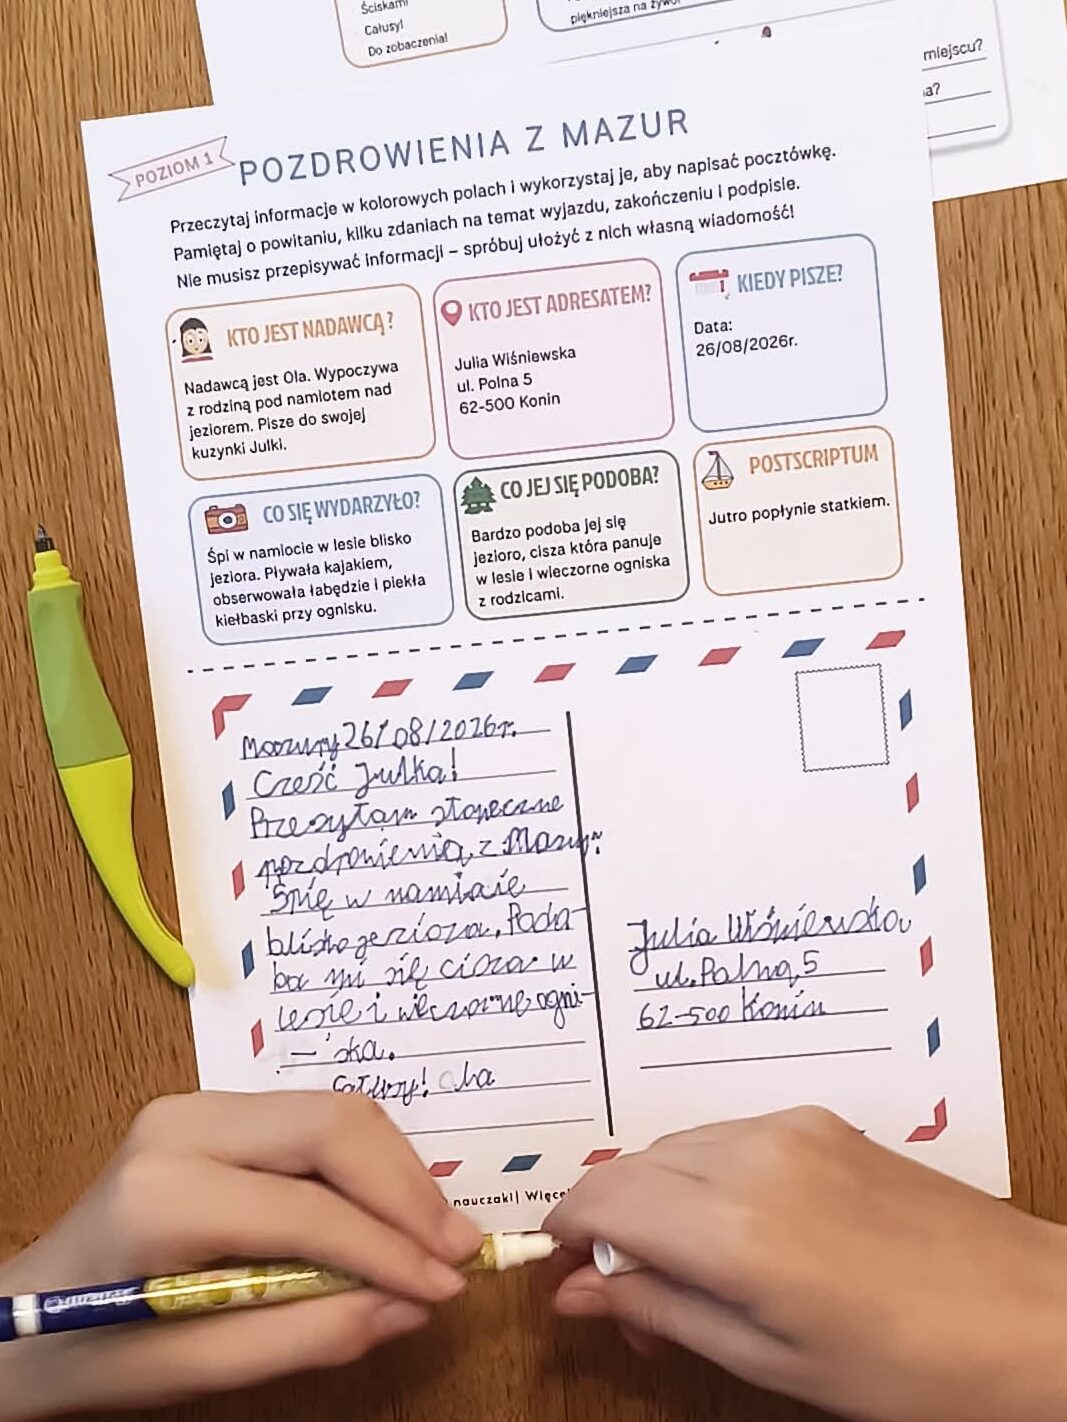 Ściskam!
Całusy!
Do zobaczenia!
piękniejsza na żywo!
miejscu?
POZIOM 1
POZDROWIENIA Z MAZUR
Przeczytaj informacje w kolorowych polach i wykorzystaj je, aby napisać pocztówkę.
Pamiętaj o powitaniu, kilku zdaniach na temat wyjazdu, zakończeniu i podpisie.
Nie musisz przepisywać informacji – spróbuj ułożyć z nich własną wiadomość!
KTO JEST NADAWCĄ?
Nadawcą jest Ola. Wypoczywa
z rodziną pod namiotem nad
jeziorem. Pisze do swojej
kuzynki Julki.
KTO JEST ADRESATEM?
Julia Wiśniewska
ul. Polna 5
62-500 Konin
KIEDY PISZE?
Data:
26/08/2026r.
CO SIĘ WYDARZYŁO?
Śpi w namiocie w lesie blisko
jeziora. Pływała kajakiem,
obserwowała łabędzie i piekła
kiełbaski przy ognisku.
CO JEJ SIĘ PODOBA?
Bardzo podoba jej się
jezioro, cisza która panuje
w lesie i wieczorne ogniska
z rodzicami.
POSTSCRIPTUM
Jutro popłynie statkiem.
Mazury 26/08/2026r.
Cześć Julka!
Przesyłam słoneczne
pozdrowienia z Mazur.
Śpię w namiocie
blisko jeziora. Podo-
ba mi się cisza w
lesie i wieczorne ogni-
-ska.
Całusy! Ola
Julia Wiśniewska
ul. Polna 5
62-500 Konin
nauczaki| Więcej